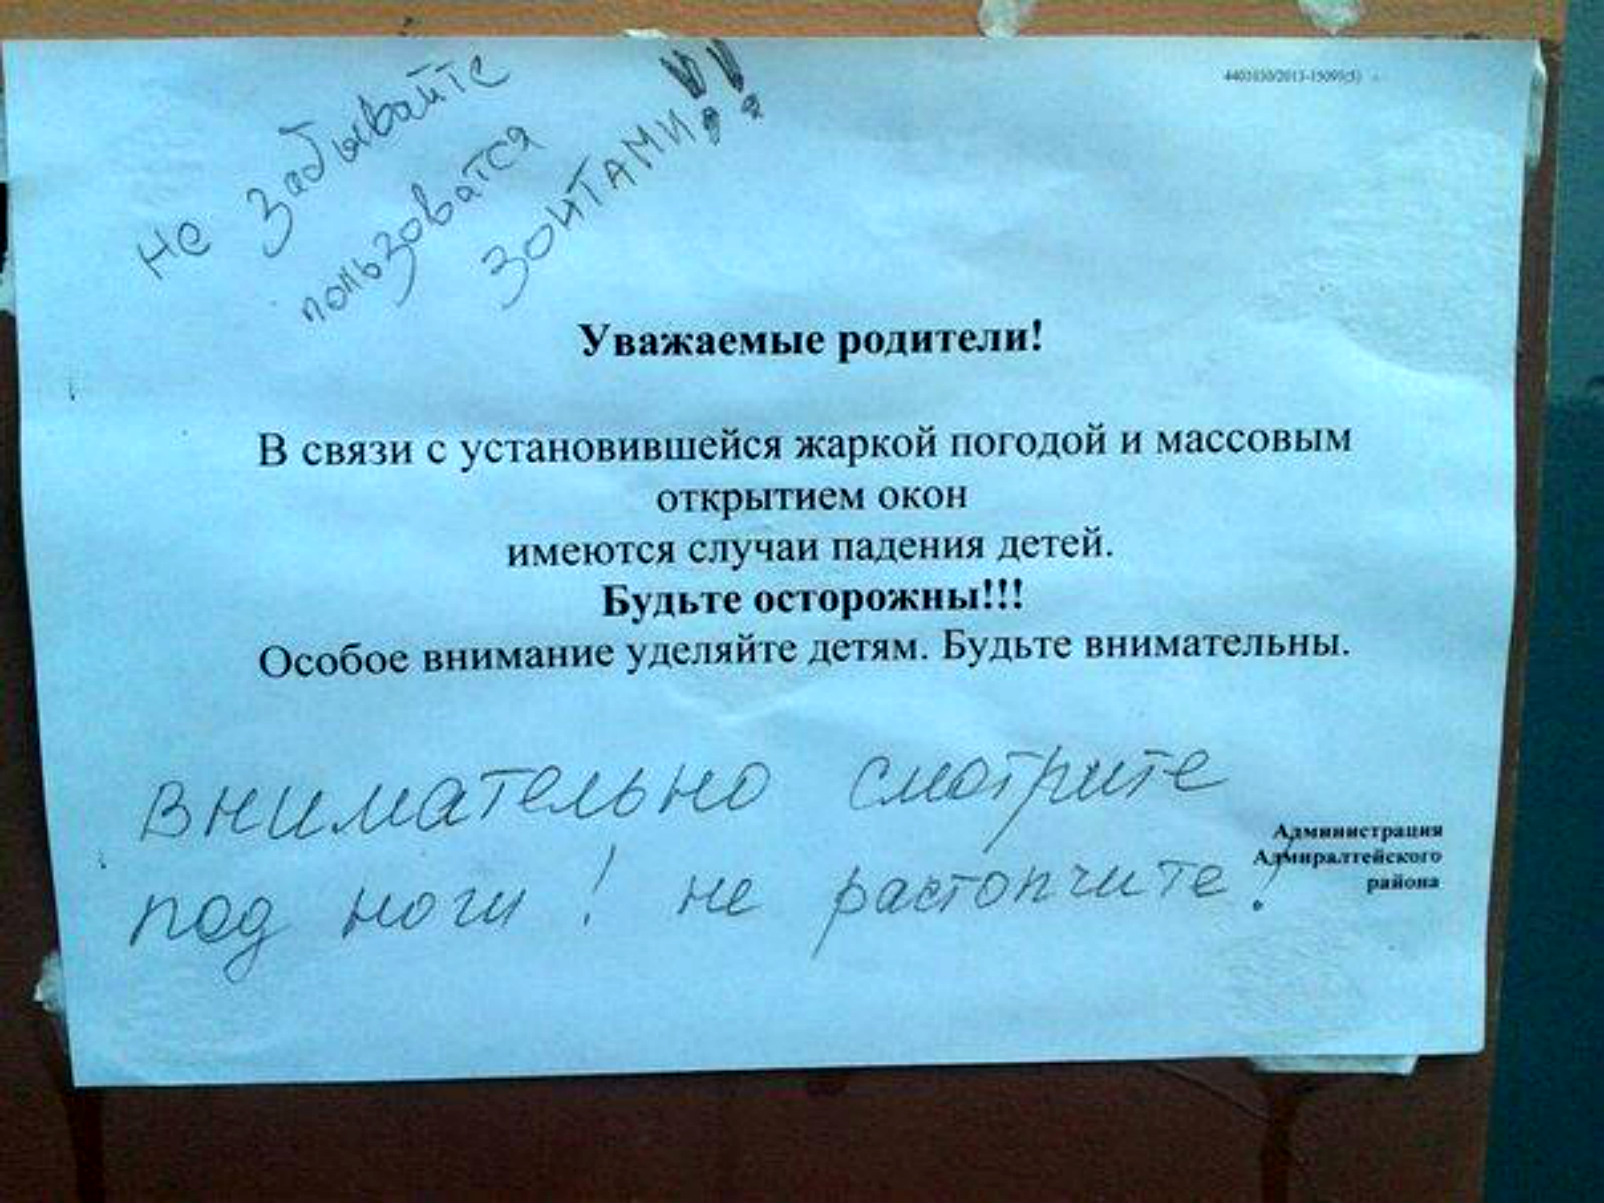 не забывайте
пользоватся
зонтами!!
Уважаемые родители!
В связи с установившейся жаркой погодой и массовым
открытием окон
имеются случаи падения детей.
Будьте осторожны!!!
Особое внимание уделяйте детям. Будьте внимательны.
внимательно смотрите
под ноги! не растопчите!
Администрация
Адмиралтейского
района